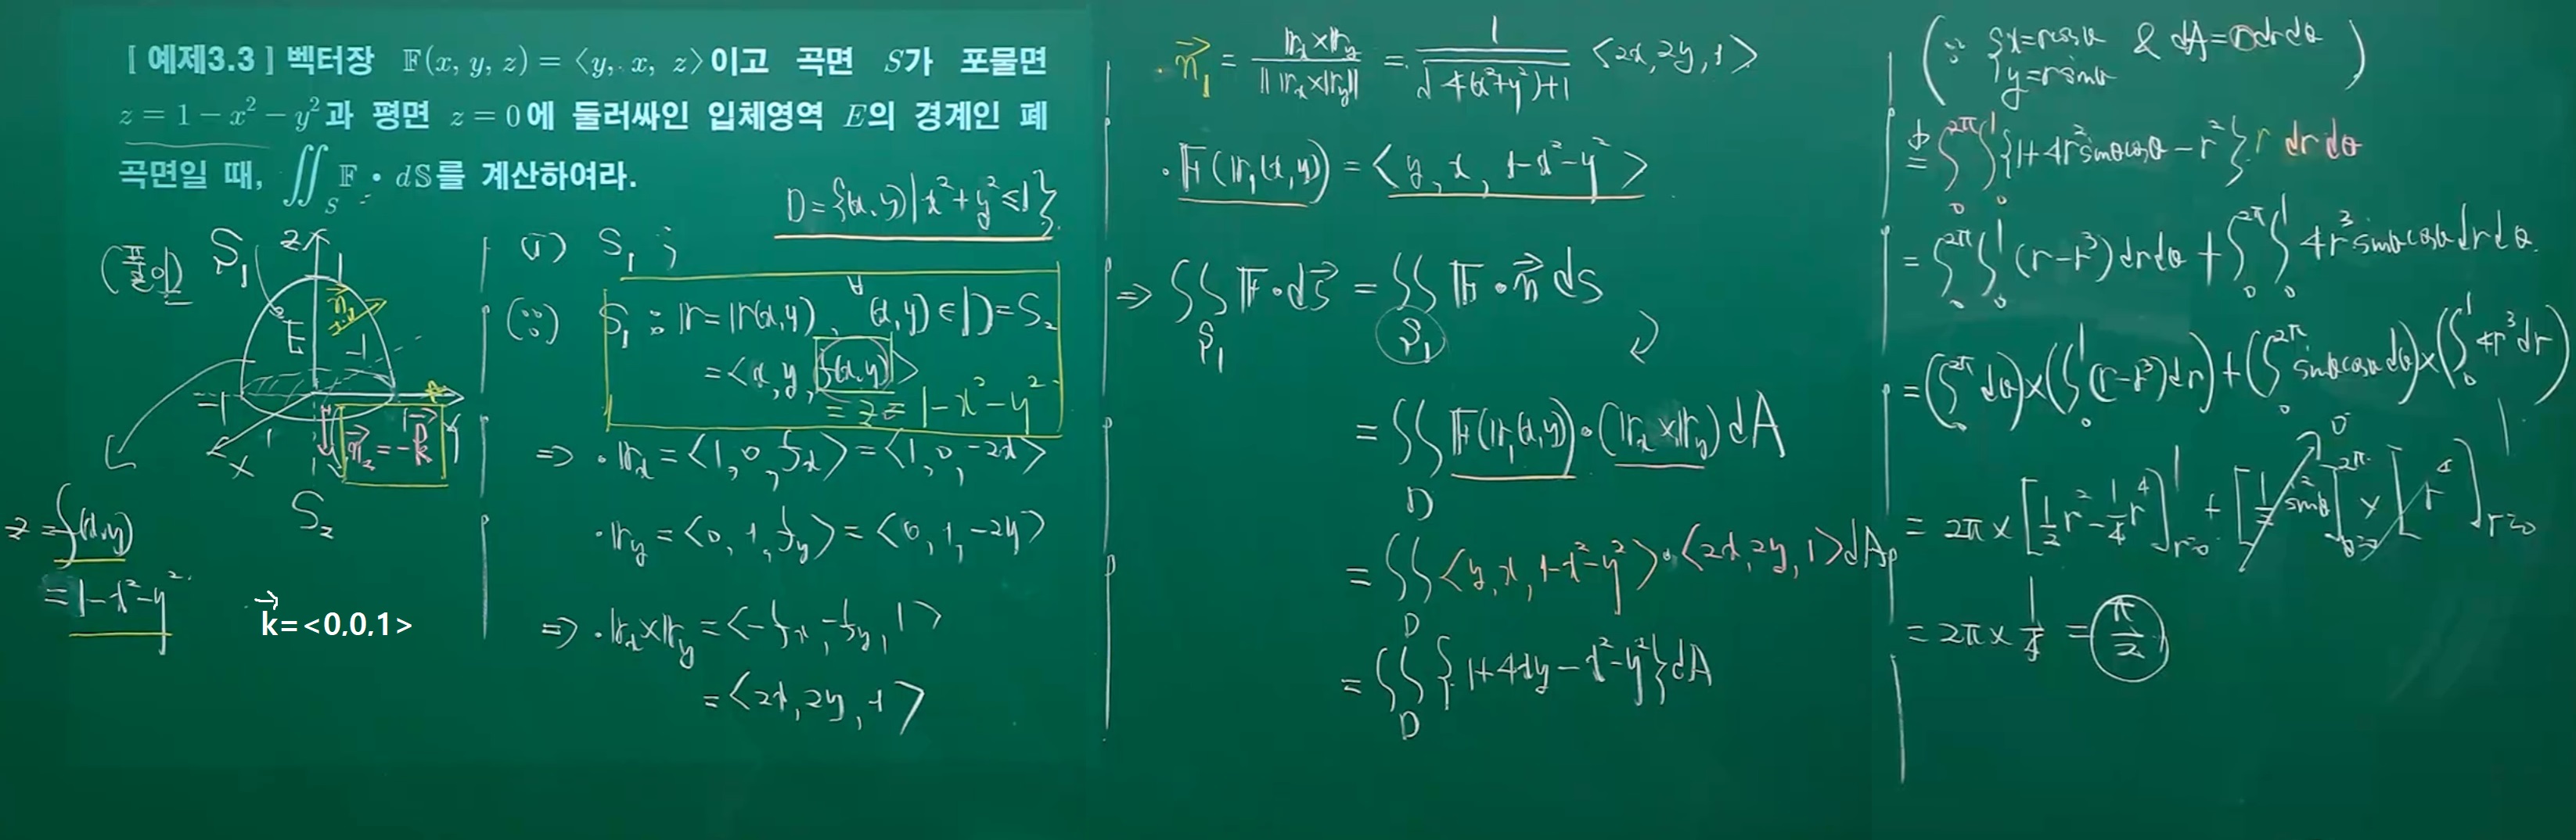 [ 예제3.3 ] 벡터장 𝔽(x, y, z) = ⟨y, x, z⟩이고 곡면 S가 포물면
z = 1 − x² − y²과 평면 z = 0에 둘러싸인 입체영역 E의 경계인 폐
곡면일 때, ∬_S 𝔽 • d𝕊를 계산하여라.
D = {(x, y) | x² + y² ≤ 1}
(풀이)
S₁
z
1
n⃗₁
E
-1
-1
1
1
x
y
n⃗₂ = -k⃗
S₂
z = f(x,y)
= 1-x²-y²
k⃗=<0,0,1>
(i) S₁ ;
(∵) S₁ : 𝕣 = 𝕣(x,y), ∀(x,y) ∈ D = S₂
= <x, y, f(x,y)>
= z = 1-x²-y²
⇒ · 𝕣x = <1, 0, fx> = <1, 0, -2x>
· 𝕣y = <0, 1, fy> = <0, 1, -2y>
⇒ · 𝕣x × 𝕣y = <-fx, -fy, 1>
= <2x, 2y, 1>
· n⃗₁ = (𝕣x × 𝕣y) / ||𝕣x × 𝕣y|| = 1 / √(4(x²+y²)+1) <2x, 2y, 1>
· 𝔽(𝕣(x,y)) = <y, x, 1-x²-y²>
⇒ ∬_S₁ 𝔽 · dS⃗ = ∬_S₁ 𝔽 · n⃗ dS
= ∬_D 𝔽(𝕣(x,y)) · (𝕣x × 𝕣y) dA
= ∬_D <y, x, 1-x²-y²> · <2x, 2y, 1> dA
= ∬_D {1+4xy-x²-y²} dA
(∵ {x=rcosθ y=rsinθ & dA=rdrdθ)
= ∫₀^2π ∫₀^1 {1+4r²sinθcosθ-r²} r dr dθ
= ∫₀^2π ∫₀^1 (r-r³) dr dθ + ∫₀^2π ∫₀^1 4r³ sinθcosθ dr dθ
= (∫₀^2π dθ) × (∫₀^1 (r-r³) dr) + (∫₀^2π sinθcosθ dθ) × (∫₀^1 4r³ dr)
= 2π × [1/2 r² - 1/4 r⁴]_{r=0}^1 + [1/2 sin²θ]_{θ=0}^2π × [r⁴]_{r=0}^1 0
= 2π × 1/4 = π/2